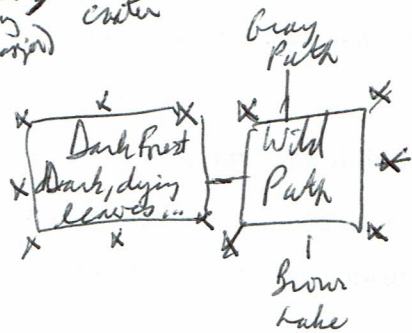 enter
Gray
Path
Dark Forest
Dark, dying
leaves...
Wild
Path
Brown
Lake